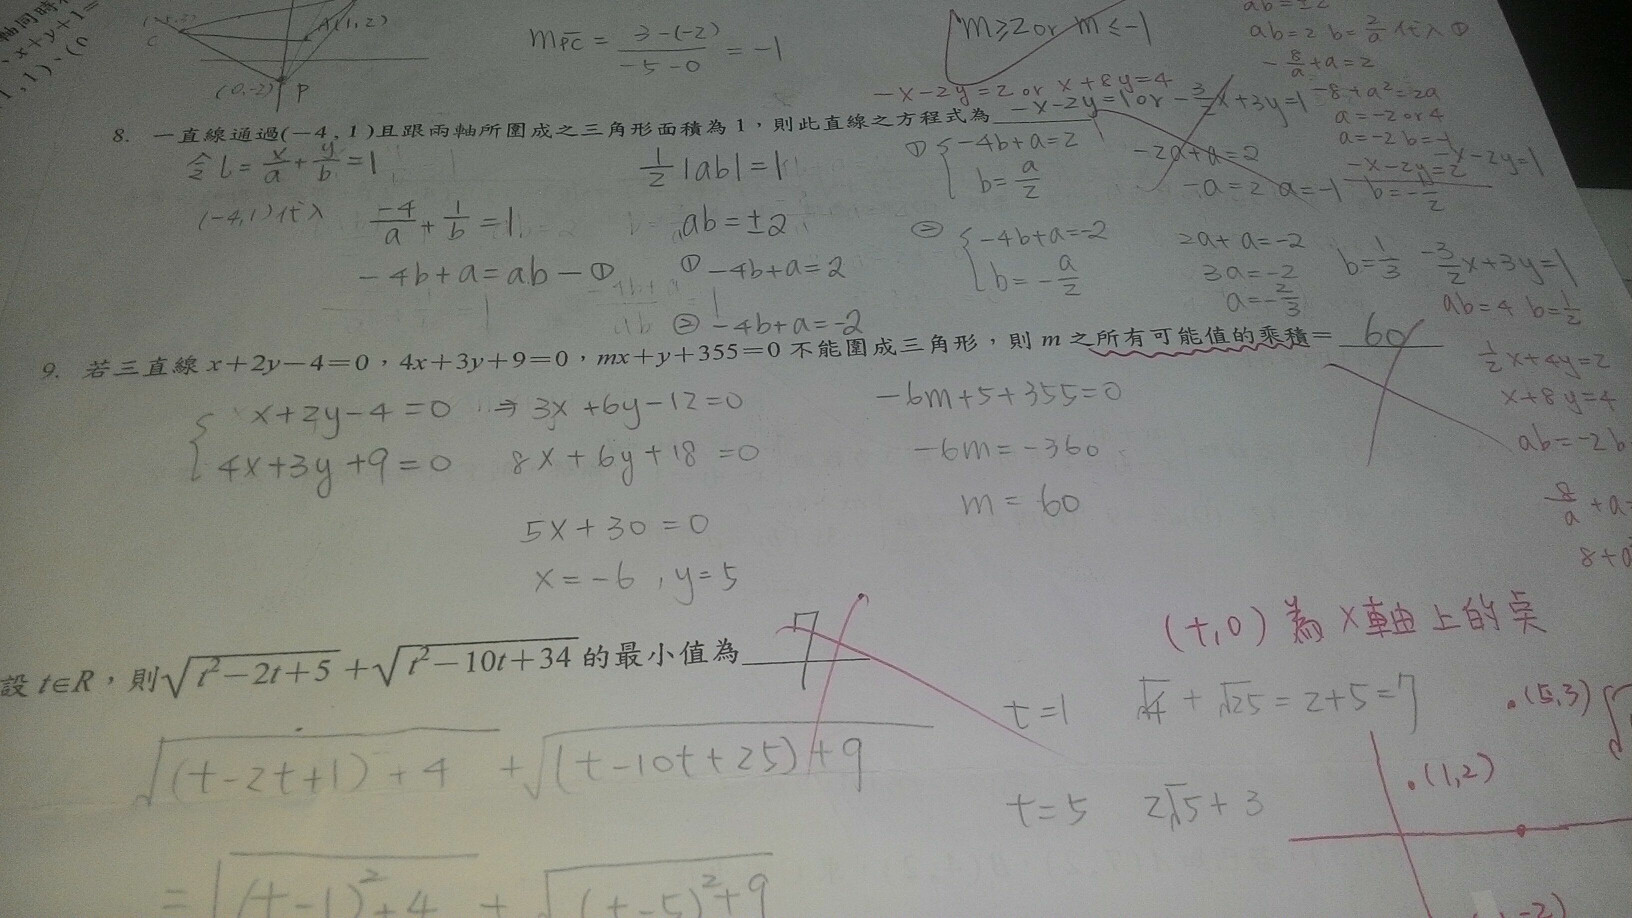 軸同時
x+y+1=
1,1)、(
C
A(1,2)
(0,-2) P
m PC = 3-(-2) / -5-0 = -1
m≥2 or m≤-1
ab=±2
ab=2 b=2/a 代入①
-8/a+a=2
-8+a²=2a
a=-2 or 4
a=-2 b=-1
-x-2y=2
-x-2y=1
-x-2y=2 or x+8y=4
-x-2y=1 or -3/2x+3y=1
8. 一直線通過(-4,1)且跟兩軸所圍成之三角形面積為1,則此直線之方程式為
令L=x/a+y/b=1
1/2|ab|=1
① { -4b+a=2
b=a/2
-2a+a=2
-a=2 a=-1
b=-1/2
(-4,1)代入 -4/a+1/b=1
ab=±2
② { -4b+a=-2
b=-a/2
2a+a=-2
3a=-2
a=-2/3
b=1/3 -3/2x+3y=1
-4b+a=ab-①
① -4b+a=2
② -4b+a=-2
ab=4 b=1/2
1/2x+4y=2
x+8y=4
ab=-2 b
8/a+a
8+a
9. 若三直線x+2y-4=0,4x+3y+9=0,mx+y+355=0不能圍成三角形,則m之所有可能值的乘積= 60
{ x+2y-4=0 ⇒ 3x+6y-12=0
4x+3y+9=0 8x+6y+18=0
5x+30=0
x=-6,y=5
-6m+5+355=0
-6m=-360
m=60
設t∈R,則√t²-2t+5+√t²-10t+34的最小值為 7
√(t-2t+1)+4+√(t-10t+25)+9
=√(t-1)²+4+√(t-5)²+9
(t,0)為x軸上的点
t=1 √4+√25=2+5=7
t=5 2√5+3
(5,3)
(1,2)
-2)